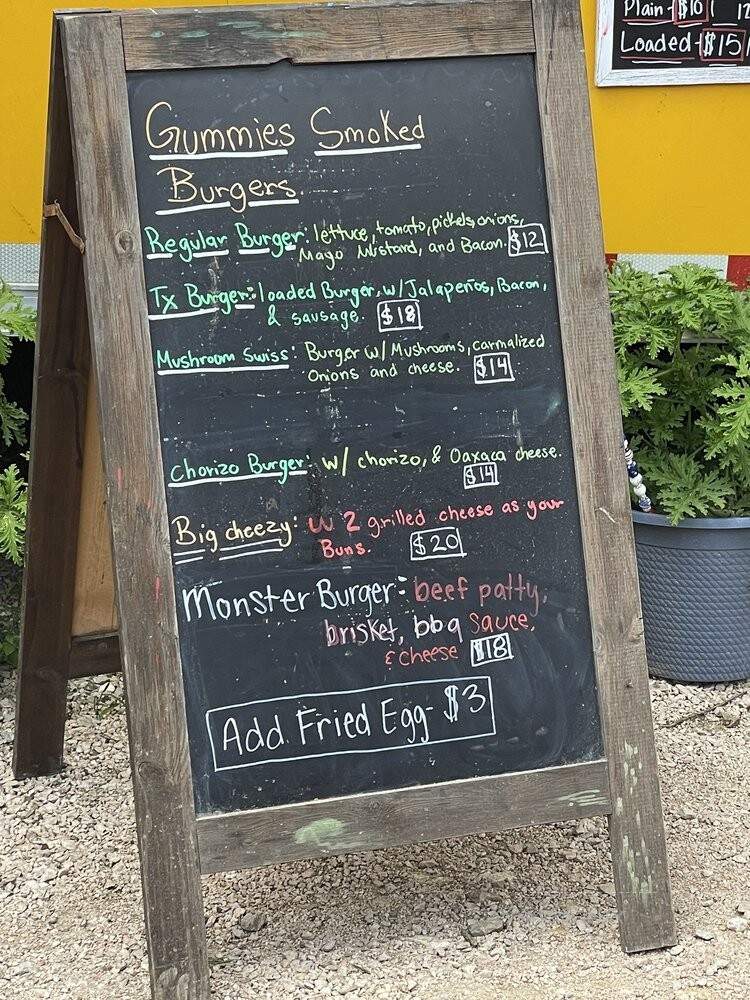 Plain - $10 | 12
Loaded - $15 |
Gummies Smoked
Burgers
Regular Burger: lettuce, tomato, pickels, onions,
Mayo Mustard, and Bacon. $12
Tx Burger: loaded Burger, w/Jalapeños, Bacon,
& sausage. $18
Mushroom Swiss: Burger w/ Mushrooms, carmalized
Onions and cheese. $14
Chorizo Burger: w/ chorizo, & Oaxaca cheese.
$14
Big cheezy: w 2 grilled cheese as your
Buns. $20
Monster Burger: beef patty,
brisket, bbq sauce,
& cheese $18
Add Fried Egg - $3